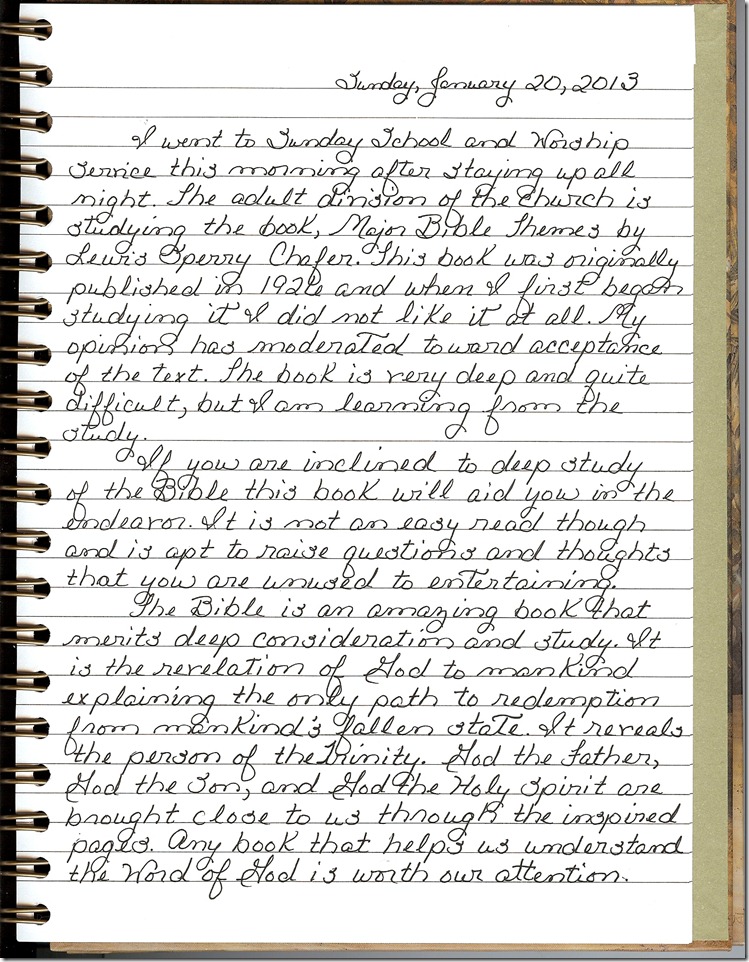 Sunday, January 20, 2013
I went to Sunday School and Worship
service this morning after staying up all
night. The adult division of the church is
studying the book, Major Bible Themes by
Lewis Sperry Chafer. This book was originally
published in 1926 and when I first began
studying it I did not like it at all. My
opinion has moderated toward acceptance
of the text. The book is very deep and quite
difficult, but I am learning from the
study.
If you are inclined to deep study
of the Bible this book will aid you in the
endeavor. It is not an easy read though
and is apt to raise questions and thoughts
that you are unused to entertaining.
The Bible is an amazing book that
merits deep consideration and study. It
is the revelation of God to mankind
explaining the only path to redemption
from mankind's fallen state. It reveals
the person of the Trinity. God the Father,
God the Son, and God the Holy Spirit are
brought close to us through the inspired
pages. Any book that helps us understand
the Word of God is worth our attention.